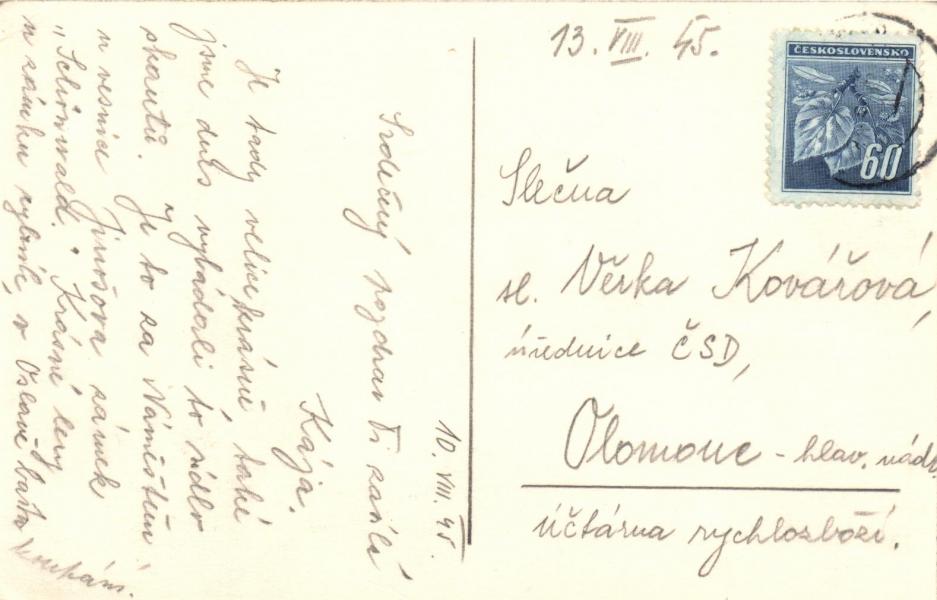 13. VIII. 45.
ČESKOSLOVENSKO
60
Slečna
sl. Věrka Kovářová,
úřednice ČSD,
Olomouc - hlav. nádr.
účtárna rychlozboží.
10. VIII. 45.
Srdečný pozdrav Ti zasílá
Kája.
Je tady velice krásně také
jsme dnes vypátrali to sídlo
skautů. Je to za Náměštěm
u vesnice Jinošova zámek
"Schönwald". Krásné lesy
u zámku rybník, v Oslavě časté
koupání.